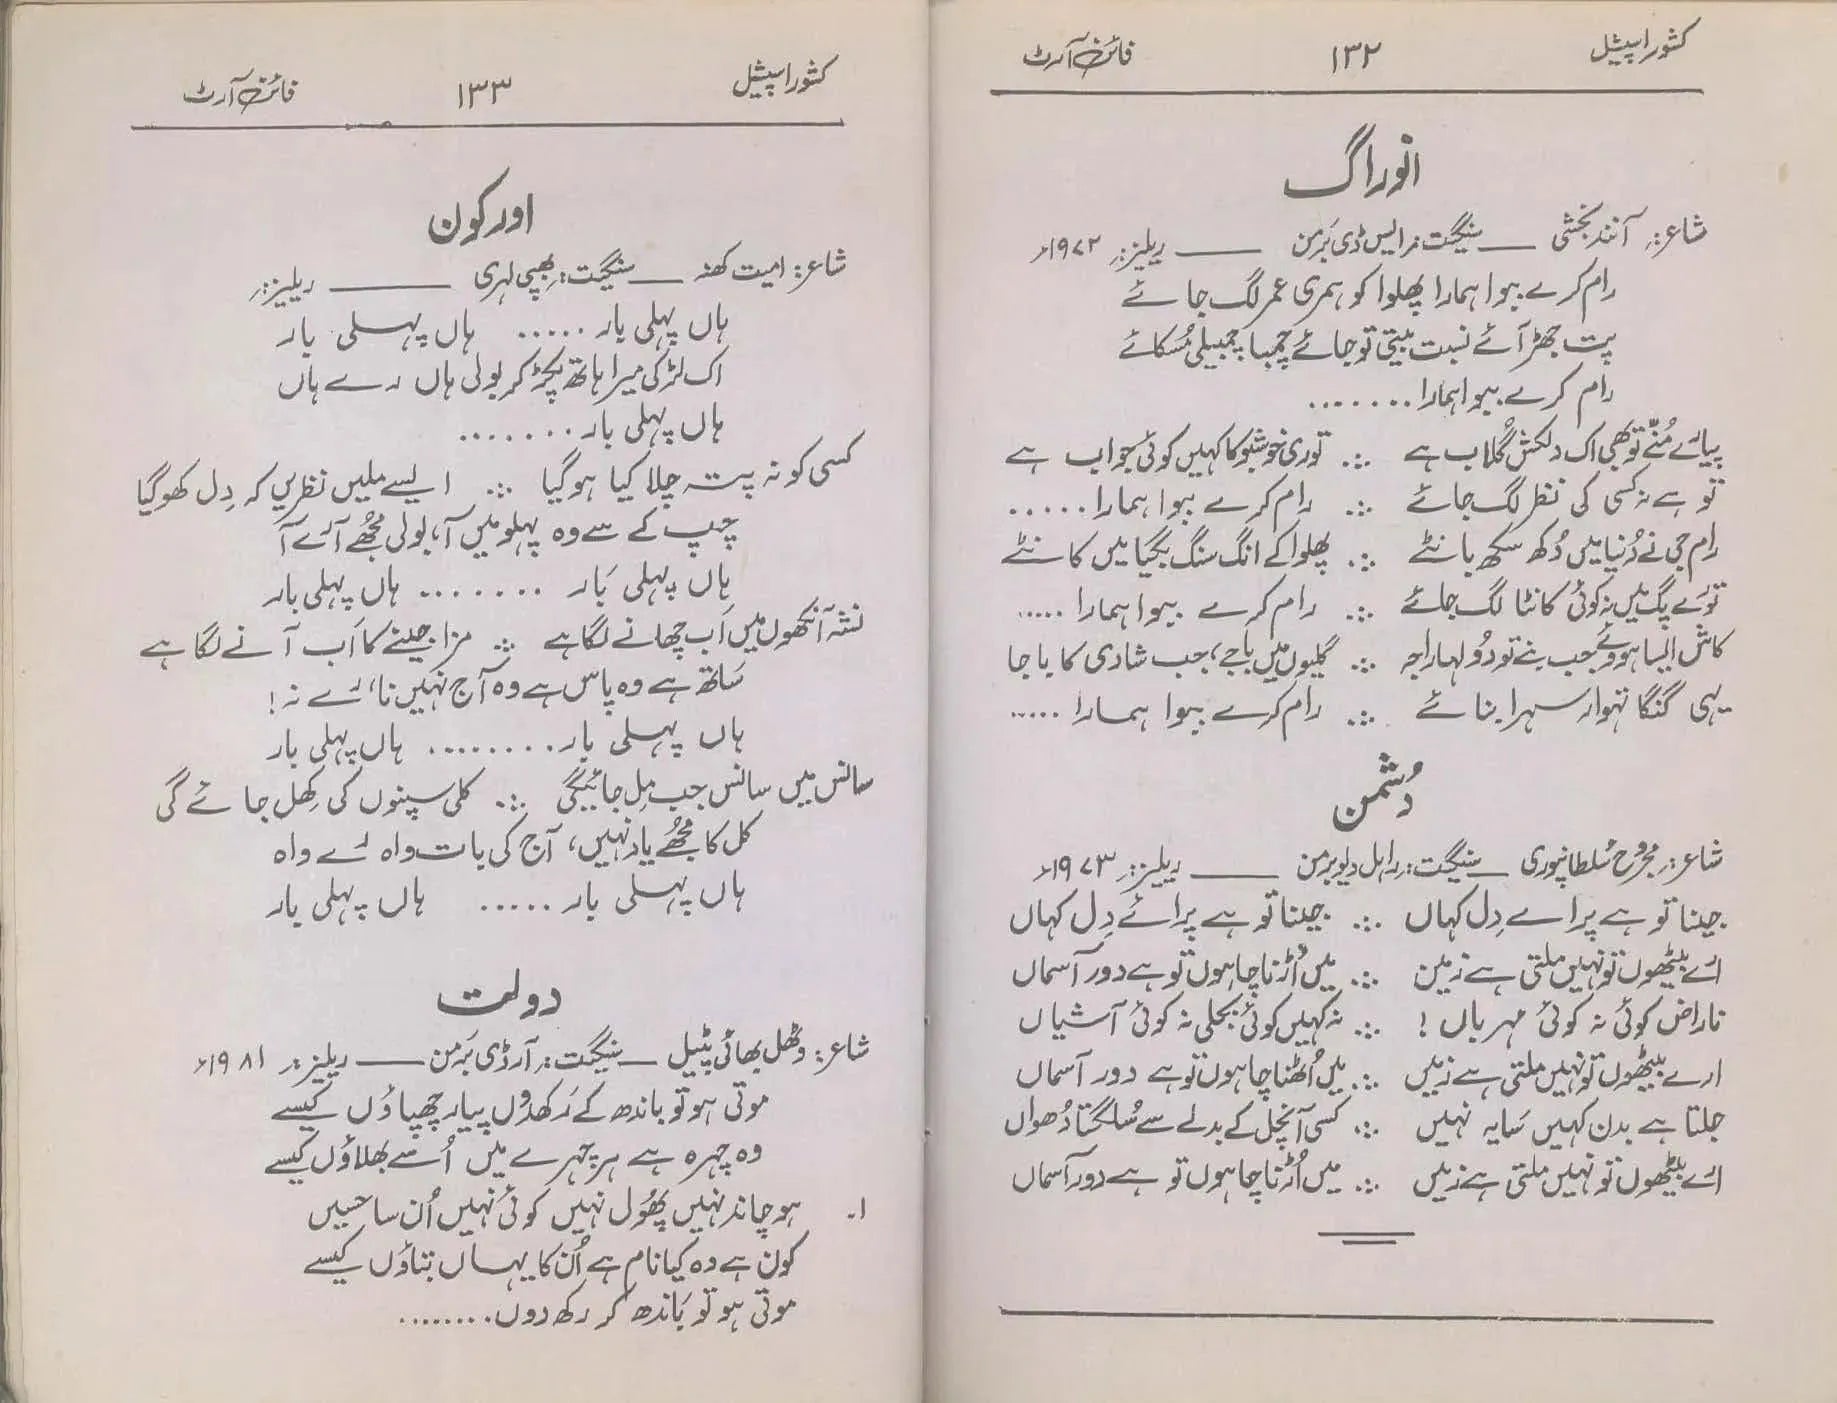 کشور اسپیشل ۱۳۲ فائن آرٹ
انوراگ
شاعر: آنند بخشی — سنگیت: ایس ڈی برمن — ریلیز: ۱۹۷۲ء
رام کرے ببوا ہمارا پھلوا کو ہمری عمر لگ جائے
پت جھڑ آئے نسبت بیتی تو جائے چمپا چمبیلی مُسکائے
رام کرے ببوا ہمارا .......
پیارے مُنّے تو بھی اک دلکش گُلاب ہے ∴ توری خوشبو کا کہیں کوئی جواب ہے
تو ہے نہ کسی کی نظر لگ جائے ∴ رام کرے ببوا ہمارا .....
رام جی نے دُنیا میں دُکھ سکھ بانٹے ∴ پھلوا کے انگ سنگ بگیا میں کانٹے
تورے پگ میں نہ کوئی کانٹا لگ جائے ∴ رام کرے ببوا ہمارا .....
کاش ایسا ہووئے جب بنے تو دُولہا راجہ ∴ گلیوں میں باجے، جب شادی کا باجا
یہی گنگا تہوار سہرا بنائے ∴ رام کرے ببوا ہمارا .....
دُشمن
شاعر: مجروح سُلطانپوری — سنگیت: راہل دیو برمن — ریلیز: ۱۹۷۳ء
جینا تو ہے پر اے دِل کہاں ∴ جینا تو ہے پر اے دِل کہاں
ارے بیٹھوں تو نہیں ملتی ہے زمین ∴ میں اُڑنا چاہوں تو ہے دور آسماں
ناراض کوئی نہ کوئی مہرباں ! ∴ نہ کہیں کوئی بجلی نہ کوئی آشیاں
ارے بیٹھوں تو نہیں ملتی ہے زمیں ∴ میں اُٹھنا چاہوں تو ہے دور آسماں
جلتا ہے بدن کہیں سَایہ نہیں ∴ کسی آنچل کے بدلے سے سُلگتا دُھواں
ارے بیٹھوں تو نہیں ملتی ہے زمیں ∴ میں اُڑنا چاہوں تو ہے دور آسماں
کشور اسپیشل ۱۳۳ فائن آرٹ
اور کون
شاعر: امیت کھنہ — سنگیت: بھپی لہری — ریلیز:
ہاں پہلی بار ..... ہاں پہلی بار
اک لڑکی میرا ہاتھ پکڑ کر بولی ہاں رے ہاں
ہاں پہلی بار .......
کسی کو نہ پتہ چلا کیا ہو گیا ∴ ایسے ملیں نظریں کہ دِل کھو گیا
چپ کے سے وہ پہلو میں آ، بولی مجھے آ رے آ
ہاں پہلی بَار ....... ہاں پہلی بار
نشہ آنکھوں میں اَب چھانے لگا ہے ∴ مزا جینے کا اَب آنے لگا ہے
سَاتھ ہے وہ پاس ہے وہ آج نہیں نا، رے نہ !
ہاں پہلی بار ........ ہاں پہلی بار
سانس میں سانس جب مِل جائیگی ∴ کلی سپنوں کی کِھل جائے گی
کل کا مجھے یاد نہیں، آج کی بات واہ رے واہ
ہاں پہلی بار ..... ہاں پہلی بار
دولت
شاعر: وٹھل بھائی پٹیل — سنگیت: آر ڈی بَرمن — ریلیز: ۱۹۸۱ء
موتی ہو تو باندھ کے رَکھدوں پیار چھپاؤں کیسے
وہ چہرہ ہے ہر چہرے میں اُسے بھلاؤں کیسے
۱۔ ہو چاند نہیں پھُول نہیں کوئی نہیں اُن سا حسیں
کون ہے وہ کیا نام ہے اُن کا یہاں بتاؤں کیسے
موتی ہو تو بَاندھ کر رکھ دوں ........